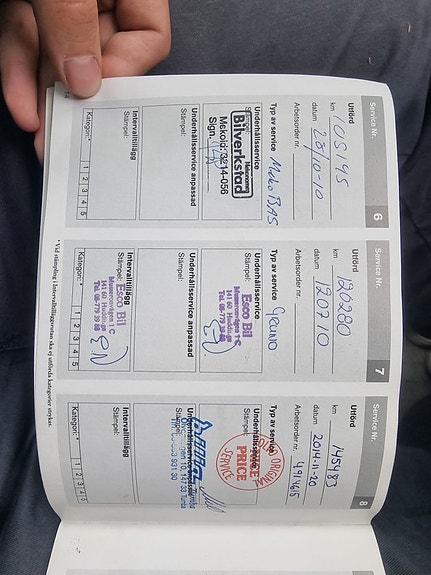 Service Nr. 6
Utförd
km 105195
datum 28/10-10
Arbetsorder nr.
Typ av service Meko BAS
Underhållsservice
Stämpel:
Mekonomen
Bilverkstad
Mekoid: 3214-056
Sign.
Underhållsservice anpassad
Stämpel:
Intervalltillägg
Stämpel:
Kategori:* 1 2 3 4 5
Service Nr. 7
Utförd
km 120280
datum 120710
Arbetsorder nr.
Typ av service GRUND
Underhållsservice
Stämpel:
Esco Bil
141 60 Huddinge
Tel. 08-779 39 88
Underhållsservice anpassad
Stämpel:
Intervalltillägg
Stämpel:
Esco Bil
141 60 Huddinge
Tel. 08-779 39 88
Kategori:* 1 2 3 4 5
Service Nr. 8
Utförd
km 145483
datum 2014-11-20
Arbetsorder nr.
Typ av service
Underhållsservice
ORIGINAL
PRICE
SERVICE
Underhållsservice anpassad
Stämpel:
Intervalltillägg
Stämpel:
Kategori:* 1 2 3 4 5
* Vid stämpling i Intervalltilläggsrutan ska ej utförda kategorier strykas.